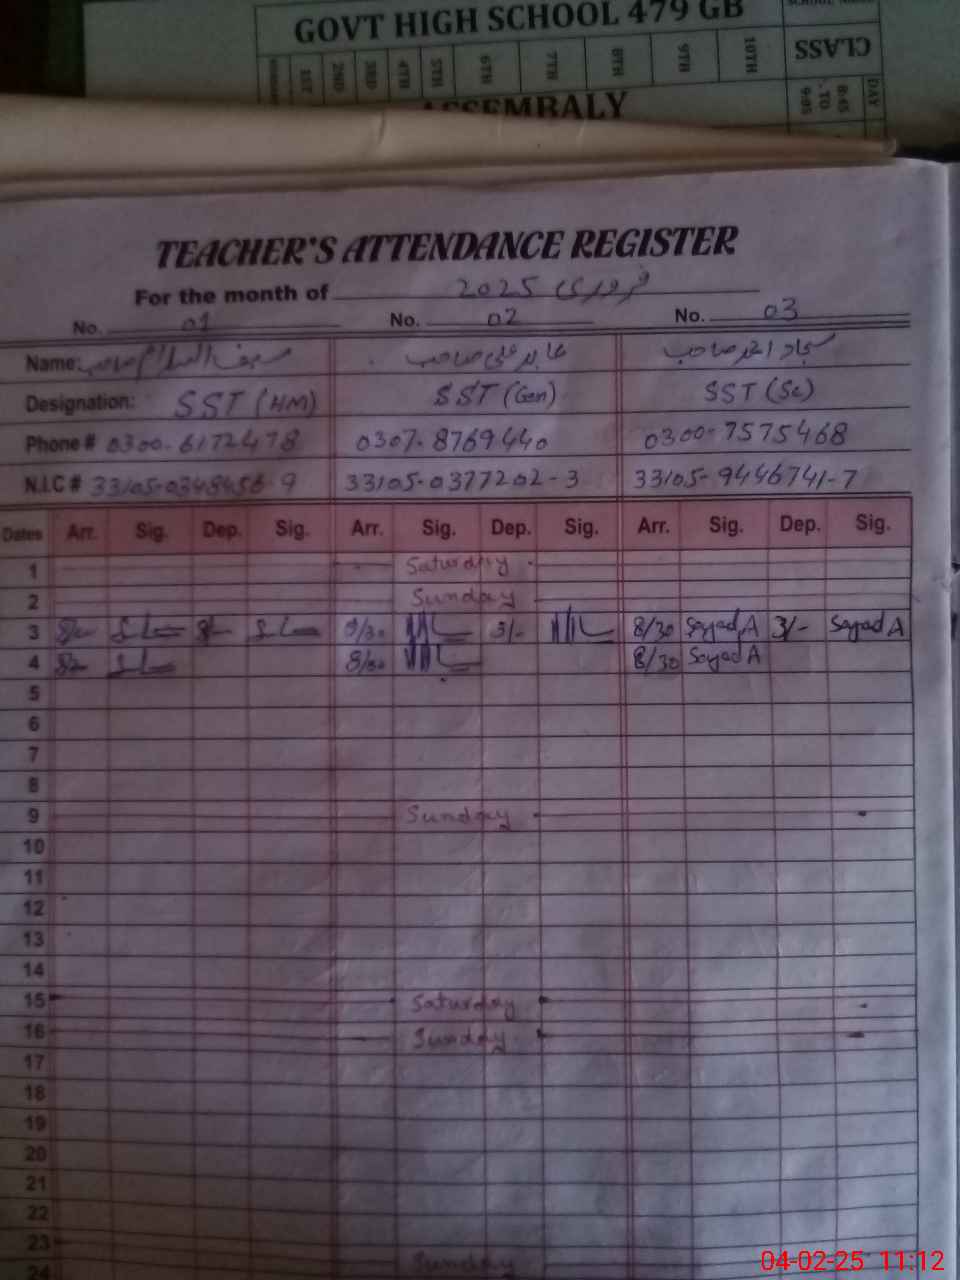 GOVT HIGH SCHOOL 479 GB
CLASS 10TH 9TH 8TH 7TH 6TH 5TH 4TH 3RD 2ND 1ST
DAY 8:45 TO 9:05 ASSEMBALY
TEACHER'S ATTENDANCE REGISTER
For the month of فروری 2025
No. 01 No. 02 No. 03
Name: سیف السلام صاحب عابد علی صاحب سجاد احمد صاحب
Designation: SST (HM) SST (Gen) SST (Sc)
Phone # 0300-6172478 0307-8769440 0300-7575468
N.I.C # 33105-0348456-9 33105-0377202-3 33105-9446741-7
Dates Arr. Sig. Dep. Sig. Arr. Sig. Dep. Sig. Arr. Sig. Dep. Sig.
1 Saturday
2 Sunday
3 8/30 3/- 8/30 Sajjad A 3/- Sajjad A
4 8/30 8/30 Sajjad A
5
6
7
8
9 Sunday
10
11
12
13
14
15 Saturday
16 Sunday
17
18
19
20
21
22
23 Sunday
24
04-02-25 11:12